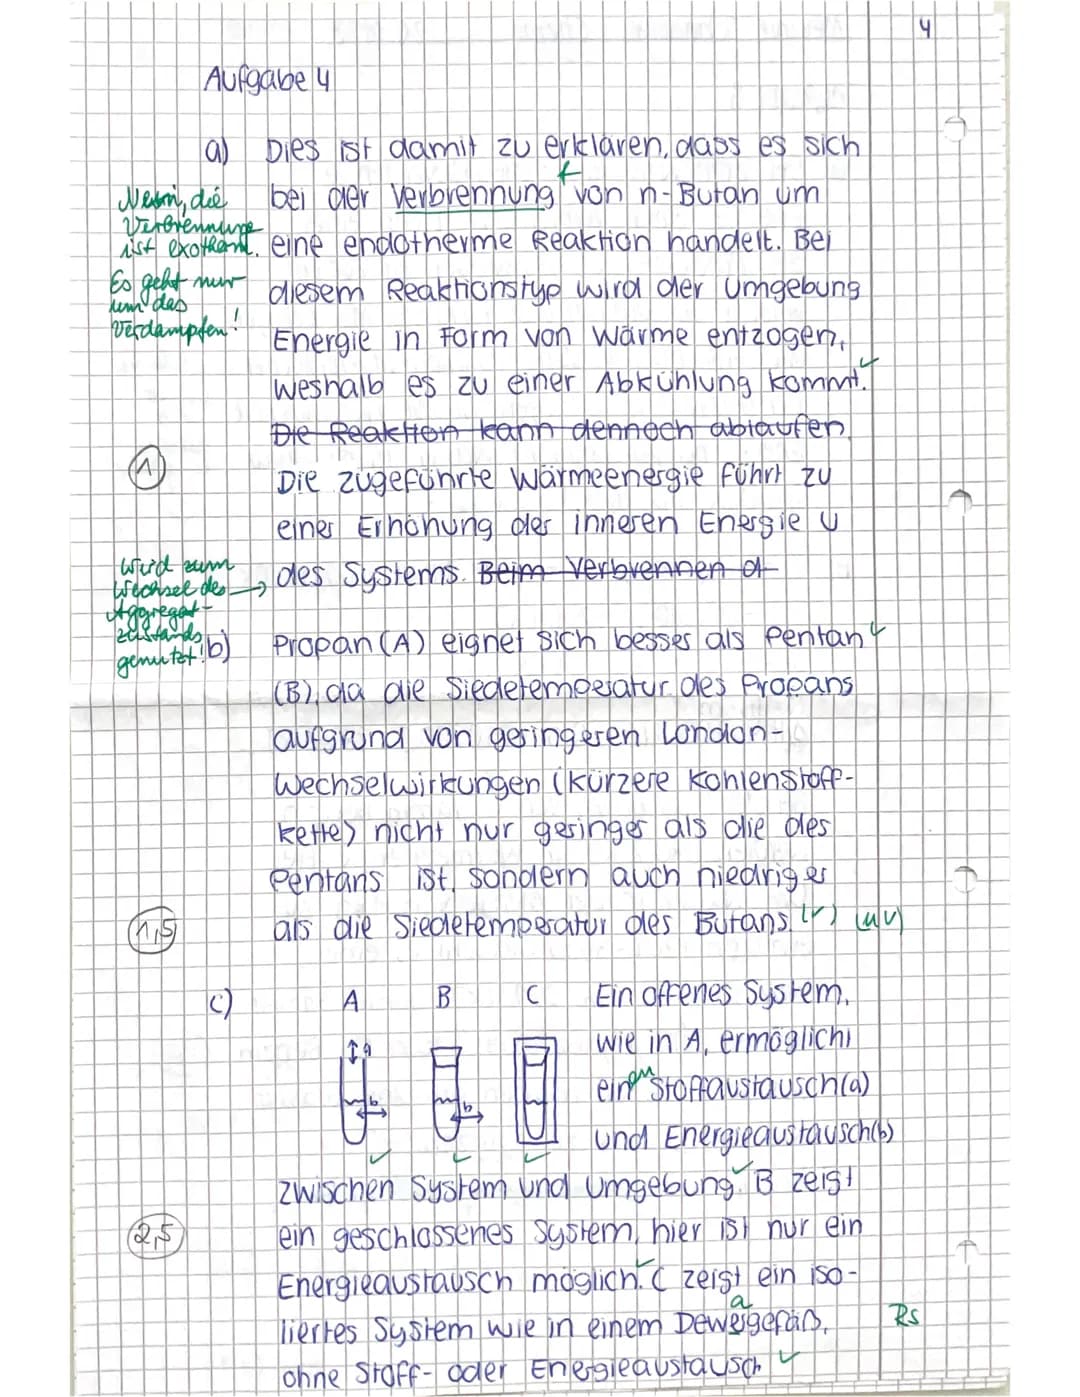 4
Aufgabe 4
a) Dies ist damit zu erklären, dass es sich
bei der Verbrennung von n-Butan um
f
eine endotherme Reaktion handelt. Bei
diesem Reaktionstyp wird der Umgebung
Energie in Form von Wärme entzogen,
weshalb es zu einer Abkühlung kommt. ✓
Nein, die
Verbrennung
ist exotherm.
Es geht nur
um das
Verdampfen!
Die Reaktion kann dennoch ablaufen
1
Die zugeführte Wärmeenergie führt zu
einer Erhöhung der inneren Energie U
des Systems. Beim Verbrennen d
Wird zum
Wechsel des →
Aggregat-
zustands
genutzt!
b) Propan (A) eignet sich besser als Pentan ✓
(B), da die Siedetemperatur des Propans
aufgrund von geringeren London-
Wechselwirkungen (kürzere Kohlenstoff-
kette) nicht nur geringer als die des
Pentans ist, sondern auch niedriger
als die Siedetemperatur des Butans. (✓) (uv)
1,5
c) A B C Ein offenes System,
wie in A, ermöglicht
ein en Stoffaustausch (a)
und Energieaustausch (b)
a
b b
✓ ✓ ✓
zwischen System und Umgebung. ✓ B zeigt
ein geschlossenes System, hier ist nur ein
2,5
Energieaustausch möglich. ✓ C zeigt ein iso-
liertes System wie in einem Dewergefäß,
a
Rs
ohne Stoff- oder Energieaustausch ✓